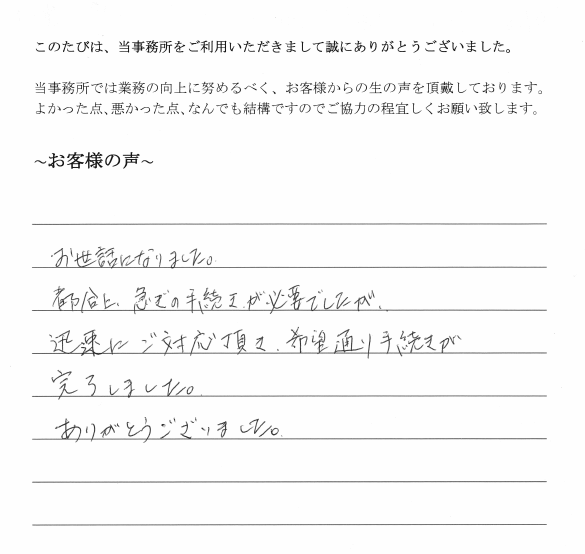 このたびは、当事務所をご利用いただきまして誠にありがとうございました。
当事務所では業務の向上に努めるべく、お客様からの生の声を頂戴しております。
よかった点、悪かった点、なんでも結構ですのでご協力の程宜しくお願い致します。
~お客様の声~
お世話になりました。
都合上、急ぎの手続きが必要でしたが、
迅速にご対応頂き、希望通り手続きが
完了しました。
ありがとうございました。